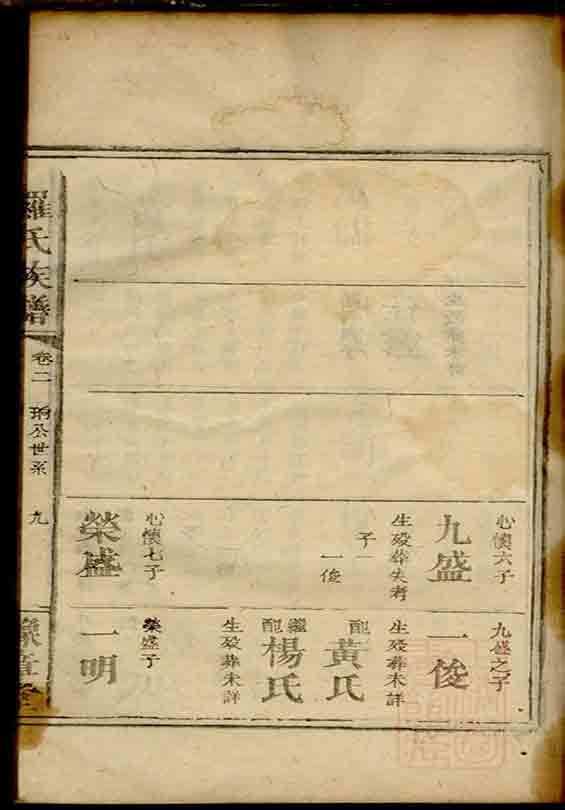 心懷六子
九盛
生歿葬失考
子一
一俊
心懷七子
榮盛
九盛之子
一俊
生歿葬未詳
配
黃氏
繼配
楊氏
生歿葬未詳
榮盛子
一明
羅氏族譜
卷二
公世系
九
豫章堂